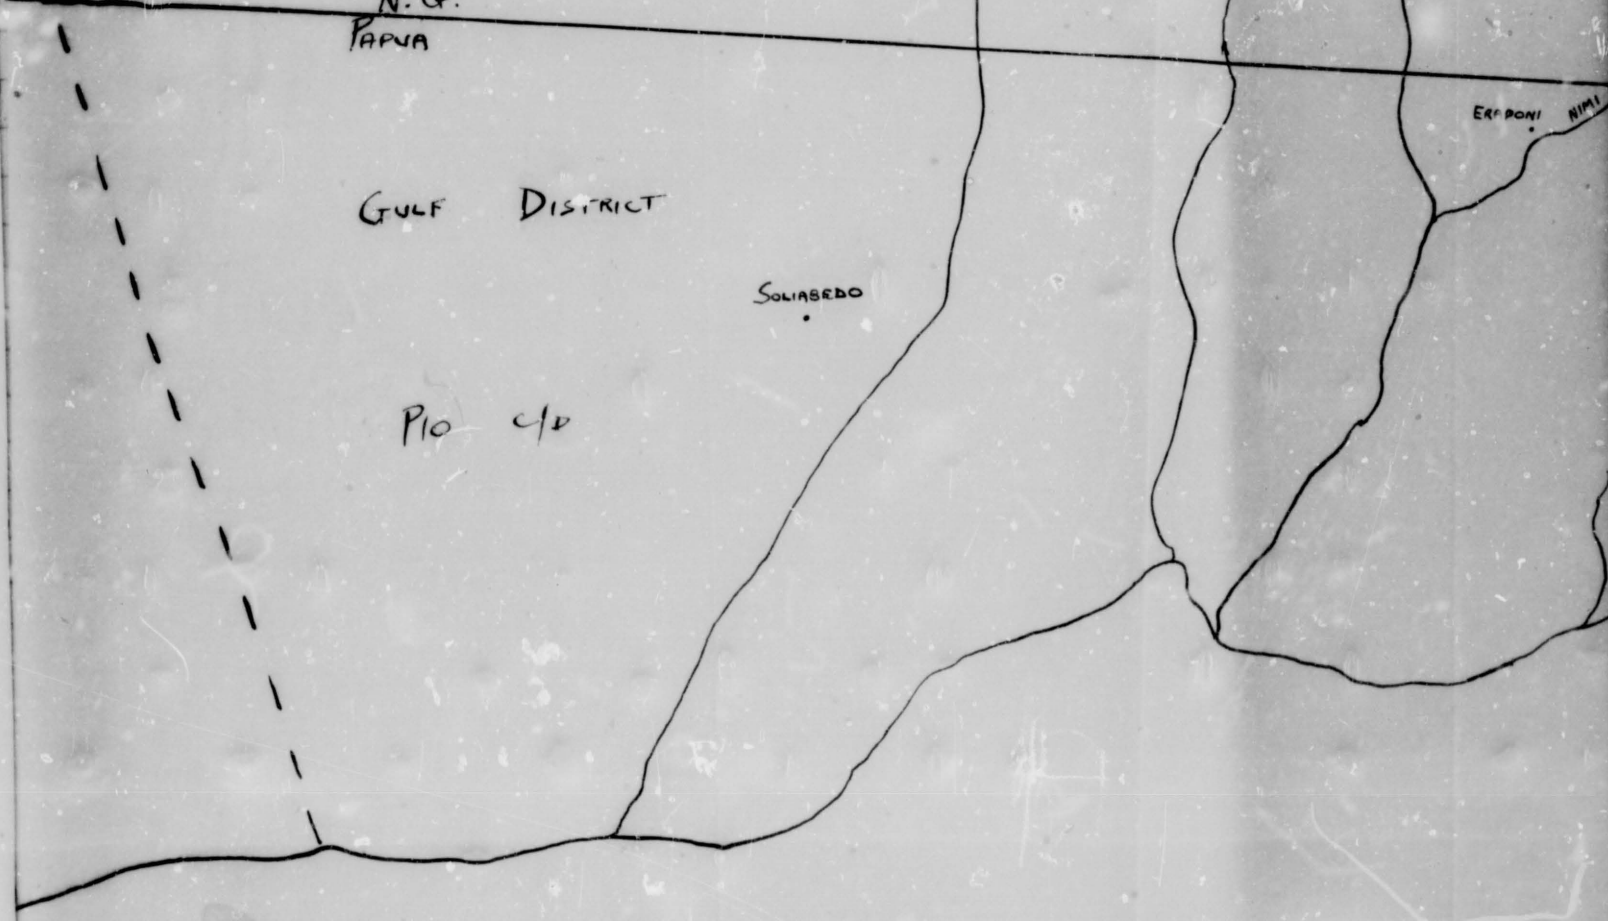 N.G.
PAPUA
ERADONI NIMI
GULF DISTRICT
SOLIABEDO
PIO C/D